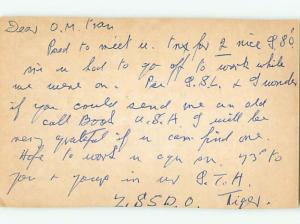 Dear O.M. Fran
Psed to meet u. tnx for 2 nice QSO
sri u had to go off to work while
we were on. Pse Q.S.L. & I wonder
if you could send me an old
call Book U.S.A. I will be
very grateful if u can find one.
Hope to work u agn sn. 73's to
you & yours in ur Q.T.H.
Z.S5D.O. Tiger.